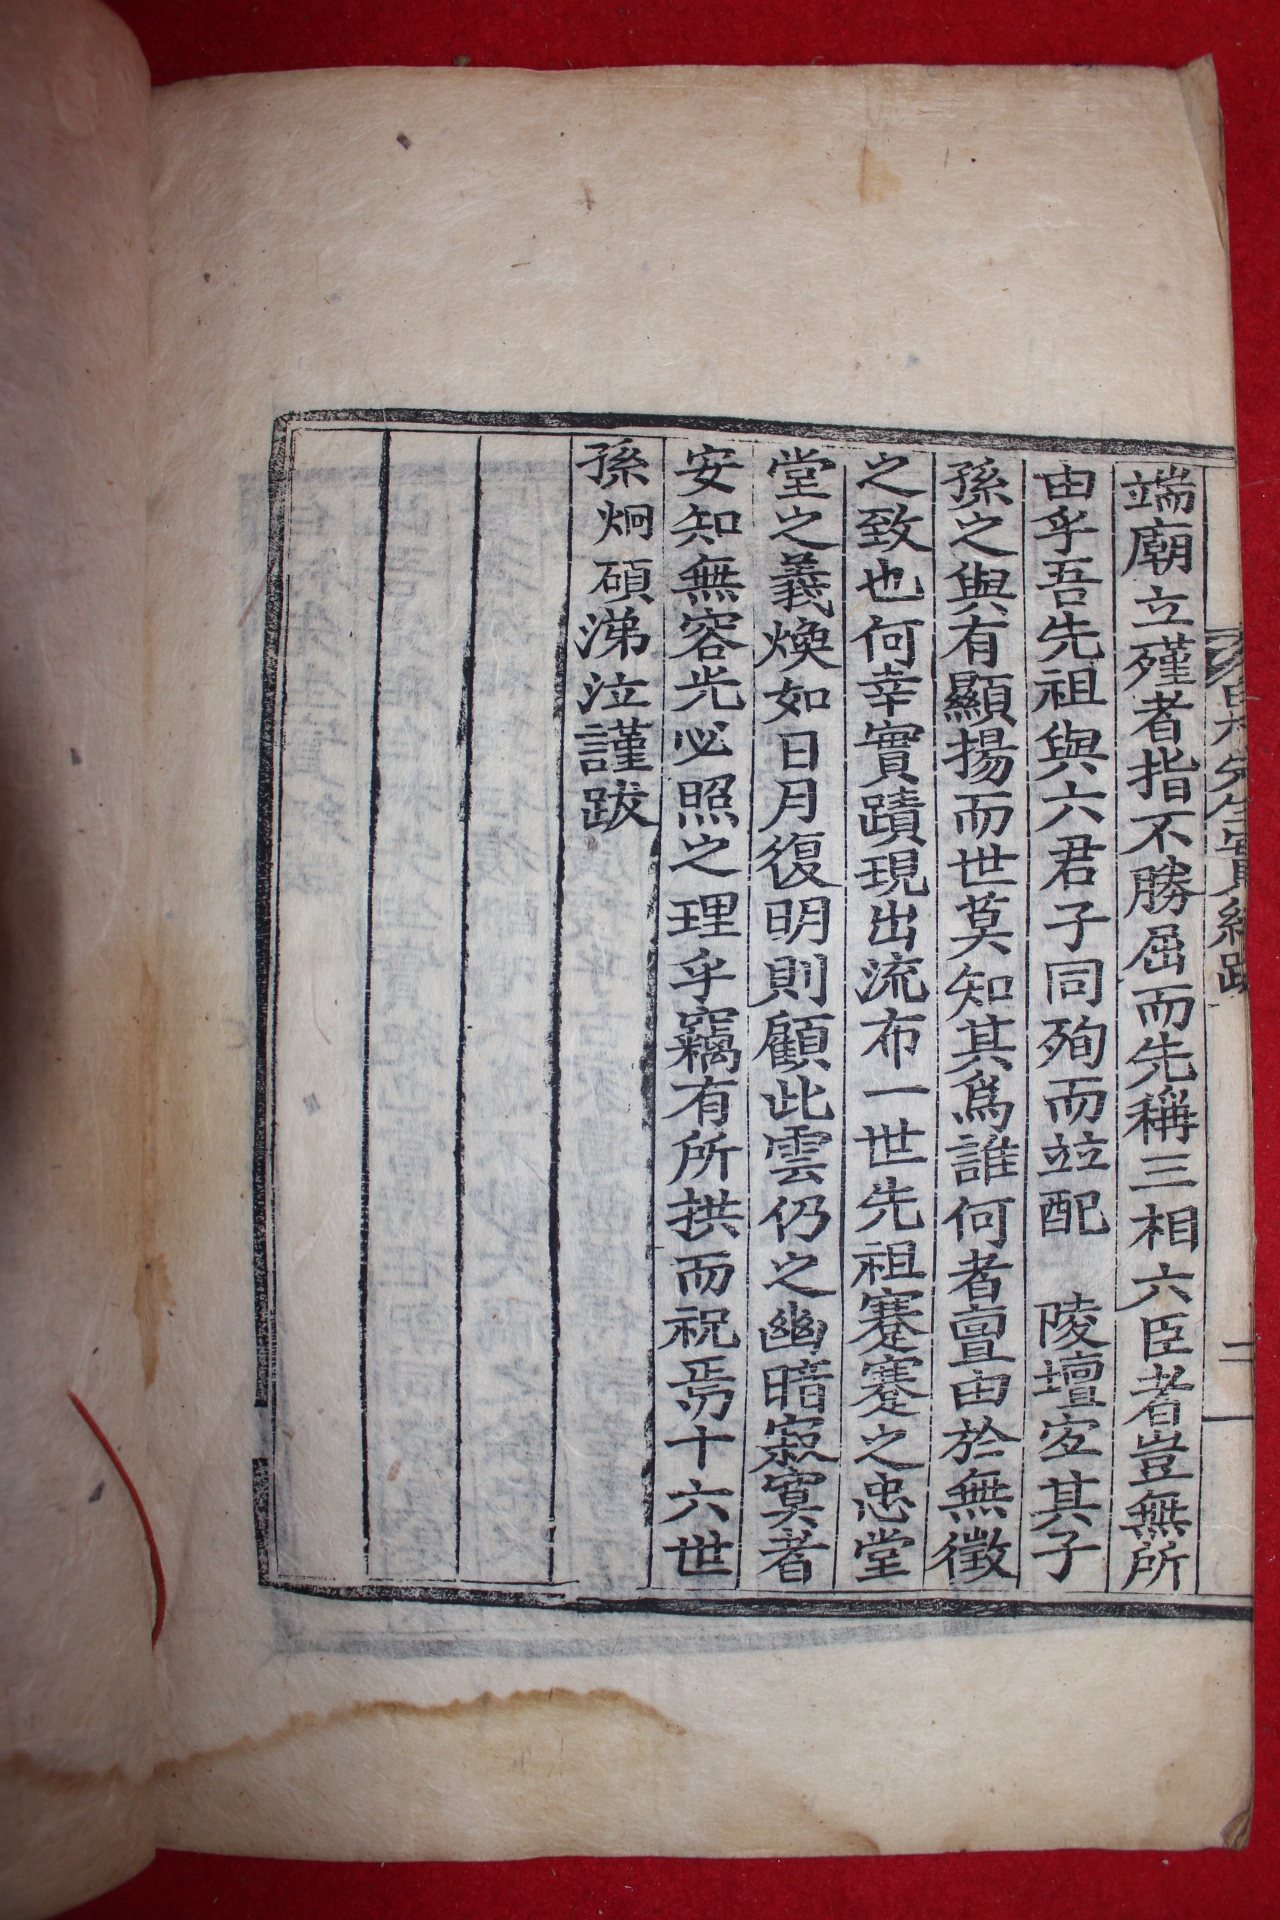 端廟立殣者指不勝屈而先稱三相六臣者豈無所
由乎吾先祖與六君子同殉而竝配　陵壇宐其子
孫之與有顯揚而世莫知其爲誰何者亶由於無徵
之致也何幸實蹟現出流布一世先祖蹇蹇之忠堂
堂之義煥如日月復明則顧此雲仍之幽暗寂寞者
安知無容光必照之理乎竊有所拱而祝焉十六世
孫炯碩涕泣謹跋
先生實紀跋
二